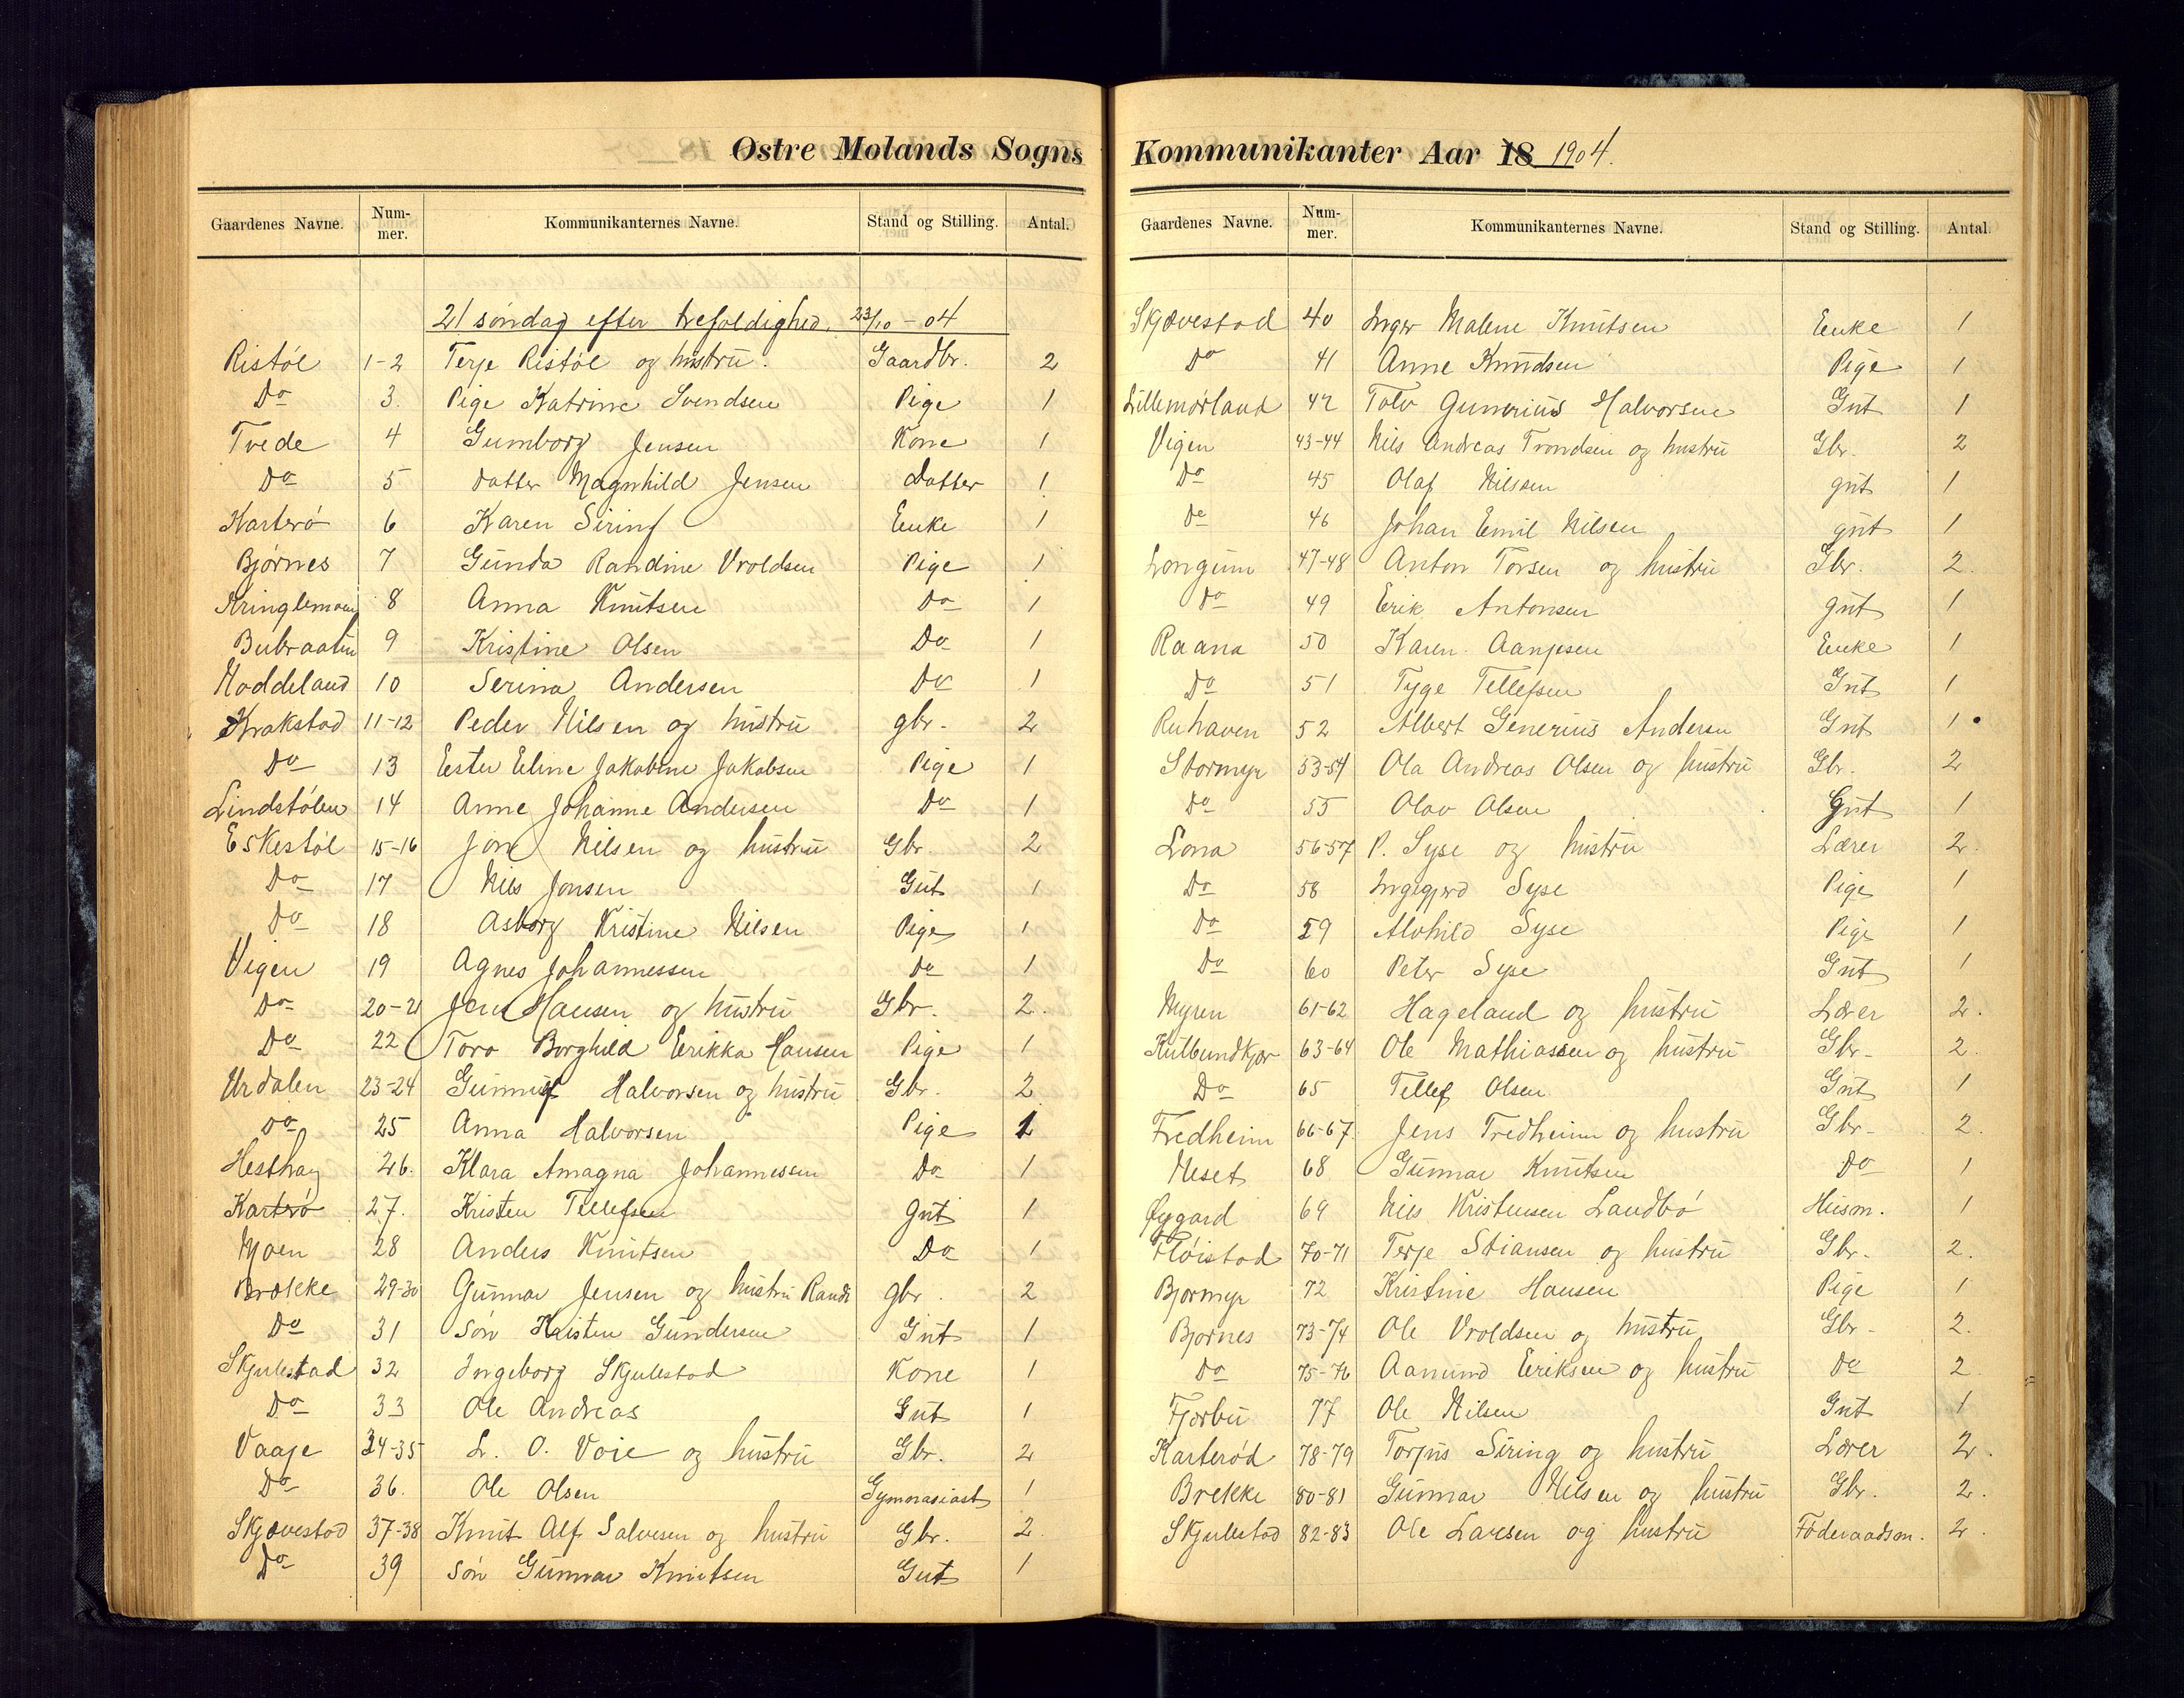 Østre Molands Sogns
Gaardenes Navne. Nummer. Kommunikanternes Navne. Stand og Stilling. Antal.
21 søndag efter trefoldighed. 23/10 - 04
Ristøl 1-2 Terje Ristøl og hustru. Gaardbr. 2
Do 3. Pige Katrine Svendsen Pige 1
Tvede 4 Gumborg Jensen Kone 1
Do 5 datter Magnhild Jensen Datter 1
Karterø 6 Karen Siring Enke 1
Bjørnes 7 Gunda Randine Vroldsen Pige 1
Kringlemoen 8 Anna Knutsen Do 1
9 Kristine Olsen Do 1
Moddeland 10 Serina Andersen Do 1
Krakstad 11-12 Peder Nilsen og hustru gbr. 2
Do 13 Ester Eline Jakobine Jakobsen Pige 1
Lindstølen 14 Anne Johanne Andersen Do 1
Eskestøl 15-16 Jon Nilsen og hustru Gbr. 2
Do 17 Nils Jonsen Gut 1
Do 18 Asborg Kristine Nilsen Pige 1
Vigen 19 Agnes Johannessen Do 1
Do 20-21 Jens Hansen og hustru Gbr. 2.
Do 22 Toro Borghild Erikka Hansen Pige 1
Urdalen 23-24 Halvorsen og hustru Gbr. 2
Do 25 Anna Halvorsen Pige 1
Hesthag 26. Klara Amagna Johannessen Do 1
Karterø 27. Kristen Tellefsen Gut 1
Moen 28 Anders Knutsen Do 1
Brække 29-30 Gunnar Jensen og hustru Randi gbr. 2
Do 31 Søn Kristen Gundersen Gut 1
Skjulestad 32 Ingeborg Skjulestad Kone 1
Do 33 Ole Andreas Gut 1
Vaaje 34-35 L. O. Voie og hustru Gbr. 2
Do 36. Ole Olsen Gymnasiast 1
Skjævestad 37-38 Knut Alf Salvesen og hustru Gbr. 2.
Do 39 Søn Gunnar Knutsen Gut 1
Kommunikanter Aar 18 1904.
Gaardenes Navne. Nummer. Kommunikanternes Navne. Stand og Stilling. Antal.
Skjævestad 40 Inger Malene Knutsen Enke 1
Do 41 Anne Knudsen Pige 1
Lillemørland 42 Tolv Gunerius Halvorsen Gut 1
Vigen 43-44 Nils Andreas Trondsen og hustru Gbr. 2
Do 45 Olaf Nilsen gut 1
Do 46 Johan Emil Nilsen gut 1
Longum 47-48 Anton Torsen og hustru Gbr. 2.
Do 49 Erik Antonsen gut 1
Raana 50 Karen Aanjesen Enke 1
Do 51 Tyge Tellefsen Gut 1
Ruhaven 52 Albert Generius Andersen Gut 1
Stormyr 53-54 Ola Andreas Olsen og hustru Gbr. 2
Do 55 Olav Olsen Gut 1
Lona 56-57 P. Syse og hustru Lærer 2.
Do 58 Ingegjerd Syse Pige 1
Do 59 Alvhild Syse Pige 1
Do 60 Peter Syse Gut 1
Myren 61-62 Hageland og hustru Lærer 2.
63-64 Ole Mathiassen og hustru Gbr. 2.
Do 65 Tellef Olsen Gut 1
Fredheim 66-67. Jens Fredheim og hustru Gbr. 2.
Neset 68 Gunnar Knutsen Do 1
Øygard 69 Nils Kristensen Landbø Husm. 1
Fløistad 70-71 Terje Stiansen og hustru Gbr. 2.
Bjormyr 72 Kristine Hansen Pige 1
Bjørnes 73-74 Ole Vroldsen og hustru Gbr. 2.
Do 75-76 Aamund Eriksen og hustru Do 2
Fjorbu 77 Ole Nilsen Gut 1
Karterød 78-79 Torjus Siring og hustru Lærer 2.
Brekke 80-81 Gunnar Nilsen og hustru Gbr. 2.
Skjulestad 82-83 Ole Larsen og hustru Føderaadsm. 2.